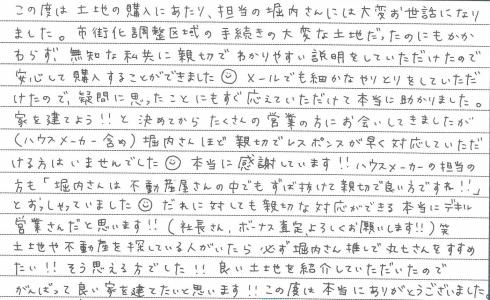 この度は土地の購入にあたり、担当の堀内さんには大変お世話になり
ました。市街化調整区域の手続きの大変な土地だったのにもかか
わらず、無知な私共に親切でわかりやすい説明をしていただけたので
安心して購入することができました☺ メールでも細かなやりとりをしていただ
けたので、疑問に思ったことにもすぐ応えていただけて本当に助かりました。
家を建てよう!!と決めてからたくさんの営業の方にお会いしてきましたが
(ハウスメーカー含め)堀内さんほど親切でレスポンスが早く対応していただ
ける方はいませんでした☺ 本当に感謝しています!! ハウスメーカーの担当の
方も「堀内さんは不動産屋さんの中でもずば抜けて親切で良い方ですね!!」
とおっしゃっていました☺ だれに対しても親切な対応ができる本当にデキル
営業さんだと思います!!(社長さん、ボーナス査定よろしくお願いします!!)笑
土地や不動産を探している人がいたら必ず堀内さん推しで丸七さんをすすめ
たい!! そう思える方でした!! 良い土地を紹介していただいたので
がんばって良い家を建てたいと思います!! この度は本当にありがとうございました。